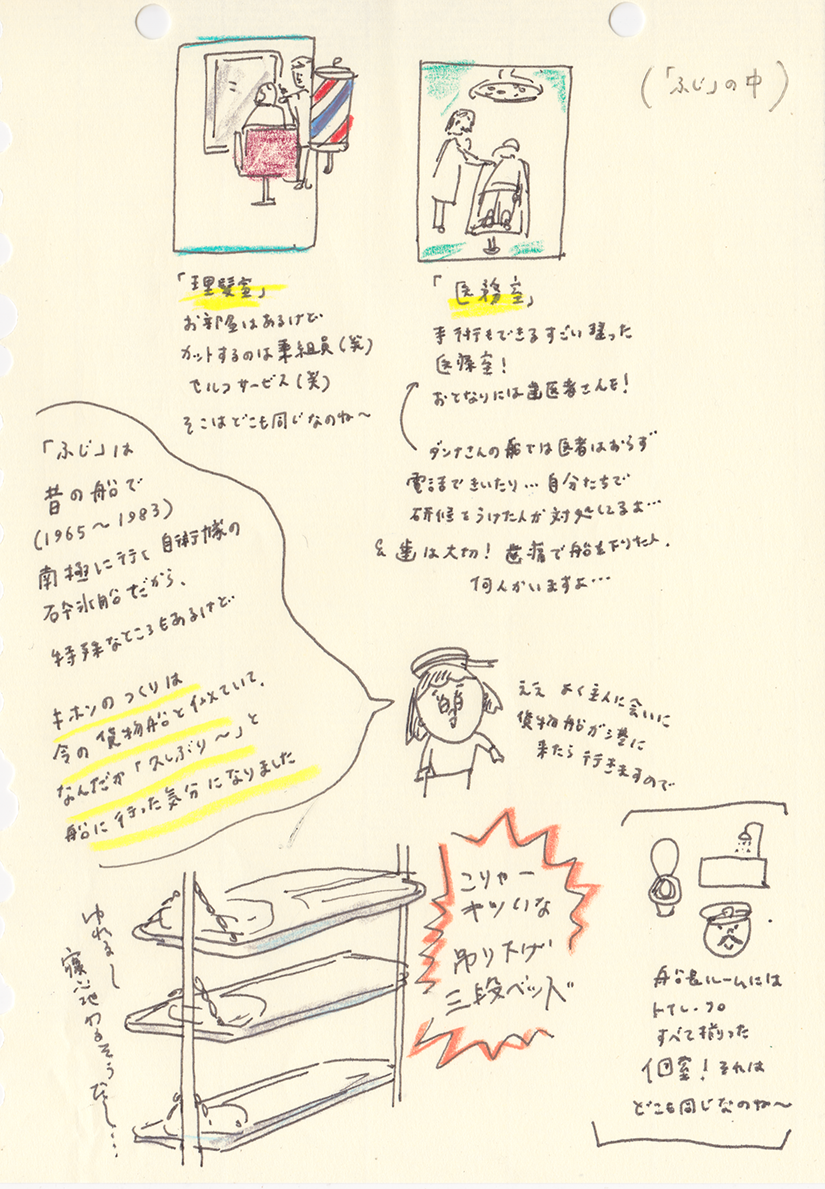 (「ふじ」の中)
「理髪室」
お部屋はあるけど
カットするのは乗組員(笑)
セルフサービス(笑)
そこはどこも同じなのね〜
「医務室」
手術もできるすごい整った
医療室!
おとなりには歯医者さんも!
ダンナさんの船では医者はおらず
電話できいたり…自分たちで
研修をうけた人が対処してるよ…
& 歯は大切! 歯痛で船を下りた人、
何人かいますよ…
「ふじ」は
昔の船で
(1965〜1983)
南極に行く自衛隊の
砕氷船だから、
特殊なところもあるけど
キホンのつくりは
今の貨物船と似ていて、
なんだか「久しぶり〜」と
船に行った気分になりました
ええ よく主人に会いに
貨物船が港に
来たら行きますので
こりゃー
キツいな
吊り下げ
三段ベッド
ゆれるし
寝心地わるそうだし…
船長ルームには
トイレ・フロ
すべて揃った
個室! それは
どこも同じなのね〜